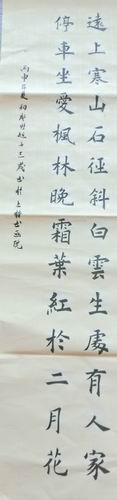 遠上寒山石徑斜白雲生處有人家
停車坐愛楓林晚霜葉紅於二月花
丙申年夏